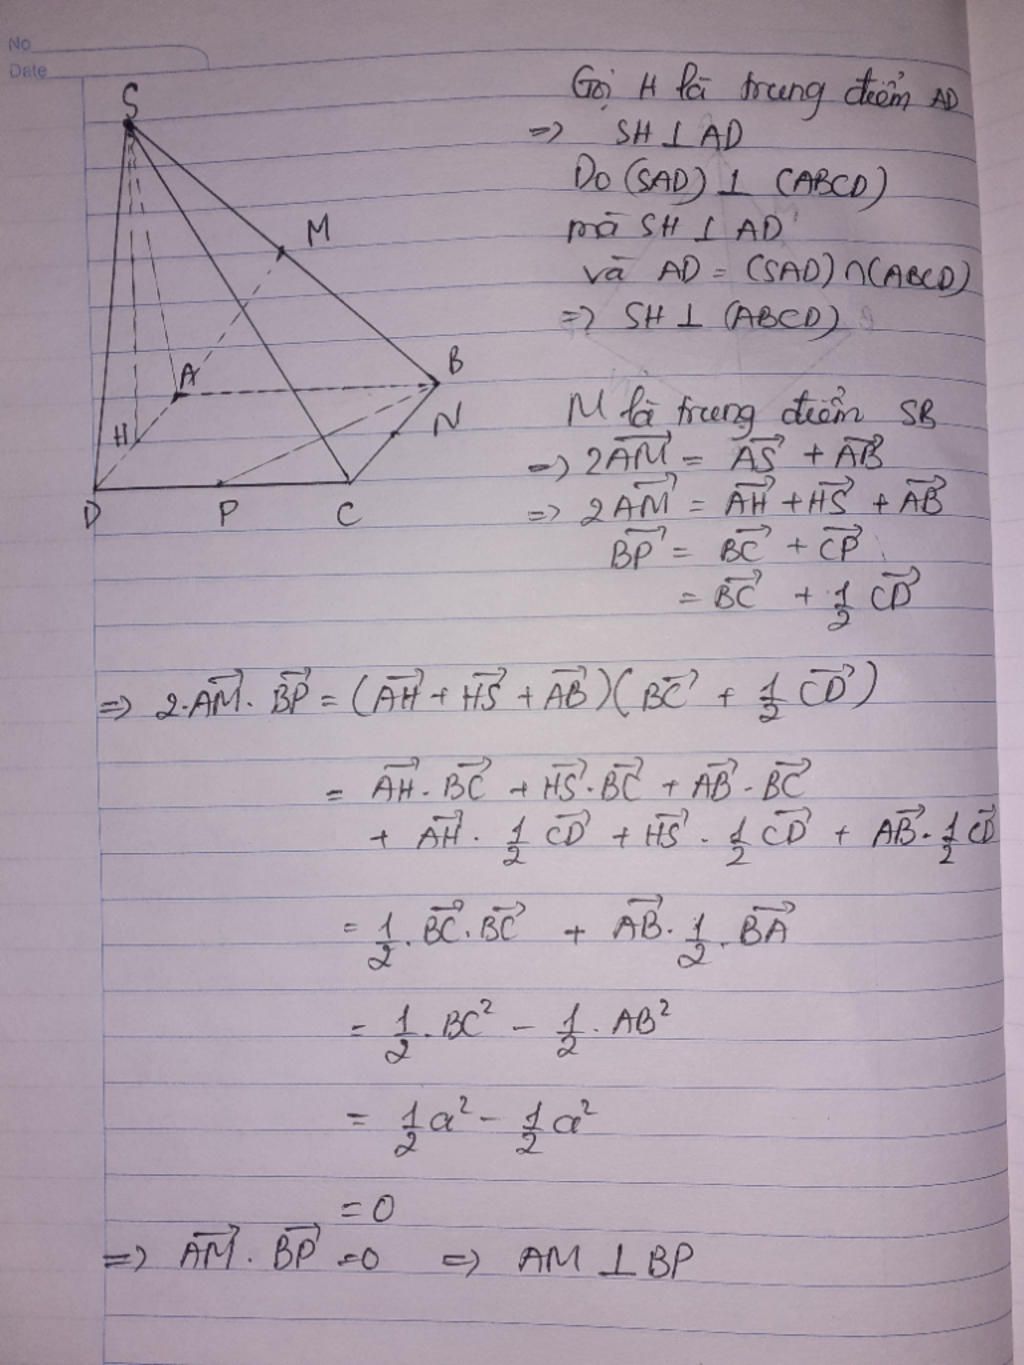 No
Date
S
M
A
B
H
N
D P C
Gọi H là trung điểm AD
=> SH ⊥ AD
Do (SAD) ⊥ (ABCD)
mà SH ⊥ AD
và AD = (SAD) ∩ (ABCD)
=> SH ⊥ (ABCD)
M là trung điểm SB
=> 2AM⃗ = AS⃗ + AB⃗
=> 2AM⃗ = AH⃗ + HS⃗ + AB⃗
BP⃗ = BC⃗ + CP⃗
= BC⃗ + 1/2 CD⃗
=> 2.AM⃗ . BP⃗ = (AH⃗ + HS⃗ + AB⃗)(BC⃗ + 1/2 CD⃗)
= AH⃗ . BC⃗ + HS⃗ . BC⃗ + AB⃗ . BC⃗
+ AH⃗ . 1/2 CD⃗ + HS⃗ . 1/2 CD⃗ + AB⃗ . 1/2 CD⃗
= 1/2 . BC⃗ . BC⃗ + AB⃗ . 1/2 . BA⃗
= 1/2 . BC² - 1/2 . AB²
= 1/2 a² - 1/2 a²
= 0
=> AM⃗ . BP⃗ = 0 => AM ⊥ BP